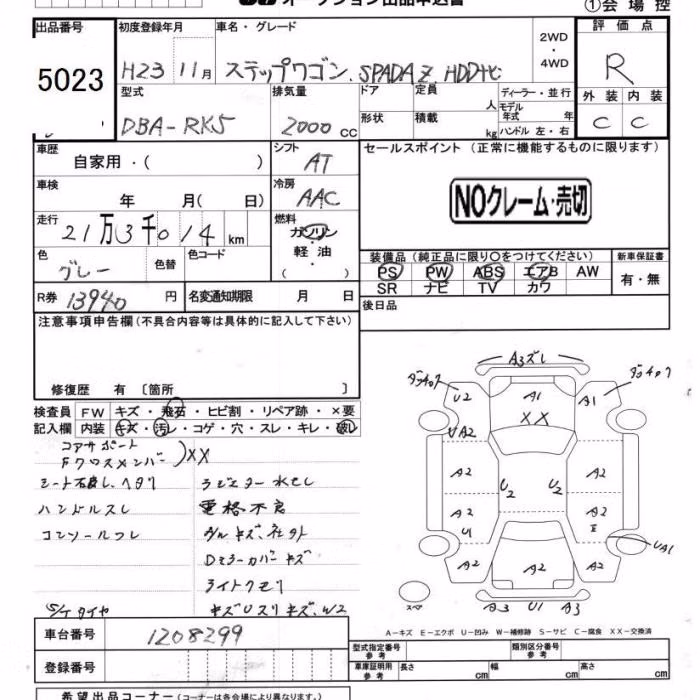 オークション出品申込書
①会場控
出品番号
5023
初度登録年月
H23 11月
車名・グレード
ステップワゴン SPADA Z HDDナビ
2WD
・
4WD
評価点
R
型式
DBA-RK5
排気量
2000 cc
ドア
定員
人
形状
積載
kg
ディーラー・並行
モデル年式 年
ハンドル 左・右
外装 内装
C C
車歴
自家用・( )
シフト
AT
セールスポイント (正常に機能するものに限ります)
NOクレーム・売切
車検
年 月( 日)
冷房
AAC
走行
21万3千014 km
燃料
ガソリン
軽油
( ・ )
色
グレー
色替
色コード
装備品(純正品に限り○をつけてください)
新車保証書
PS PW ABS エアB AW
SR ナビ TV カワ
有・無
R券 13940 円
名変通知期限 月 日
後日品
注意事項申告欄(不具合内容等は具体的に記入して下さい)
修復歴 有 〔箇所 〕
検査員
記入欄
FW キズ・飛石・ヒビ割・リペア跡・×要
内装 キズ・汚レ・コゲ・穴・スレ・キレ・破レ
コアサポート
Fクロスメンバー )XX
ハンドルスレ
電格不良
Dミラーカバーキズ
ライトクモリ
S/Kタイヤ
A3ズレ
U2
A1
A1
XX
UA2
A2
A2
U2
U2
A2
A2
U1
E
UA1
A2
A2
A2
スペア
A3 U1 A3
A-キズ E-エクボ U-凹み W-補修跡 S-サビ C-腐食 XX-交換済
車台番号
1208299
型式指定番号
参考
類別区分番号
参考
登録番号
車庫証明用
参考
長さ cm
幅 cm
高さ cm
希望出品コーナー(コーナーは各会場により異なります。)